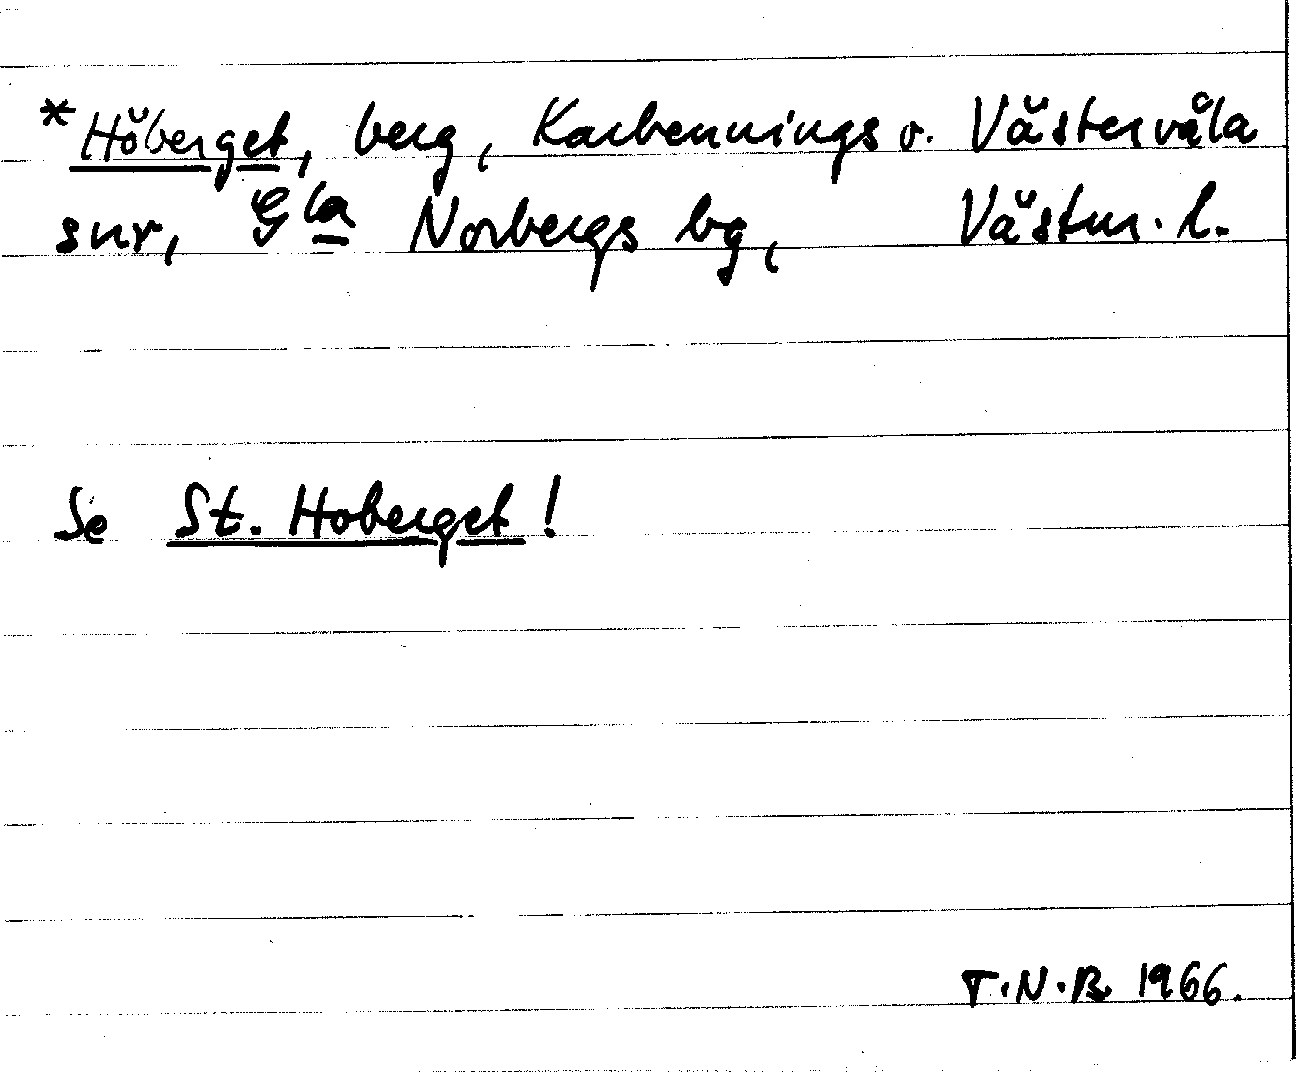 *Höberget, berg, Karbennings o. Västervåla
snr, Gla Norbergs bg, Västm. l.
Se St. Hoberget!
T.N.B. 1966.